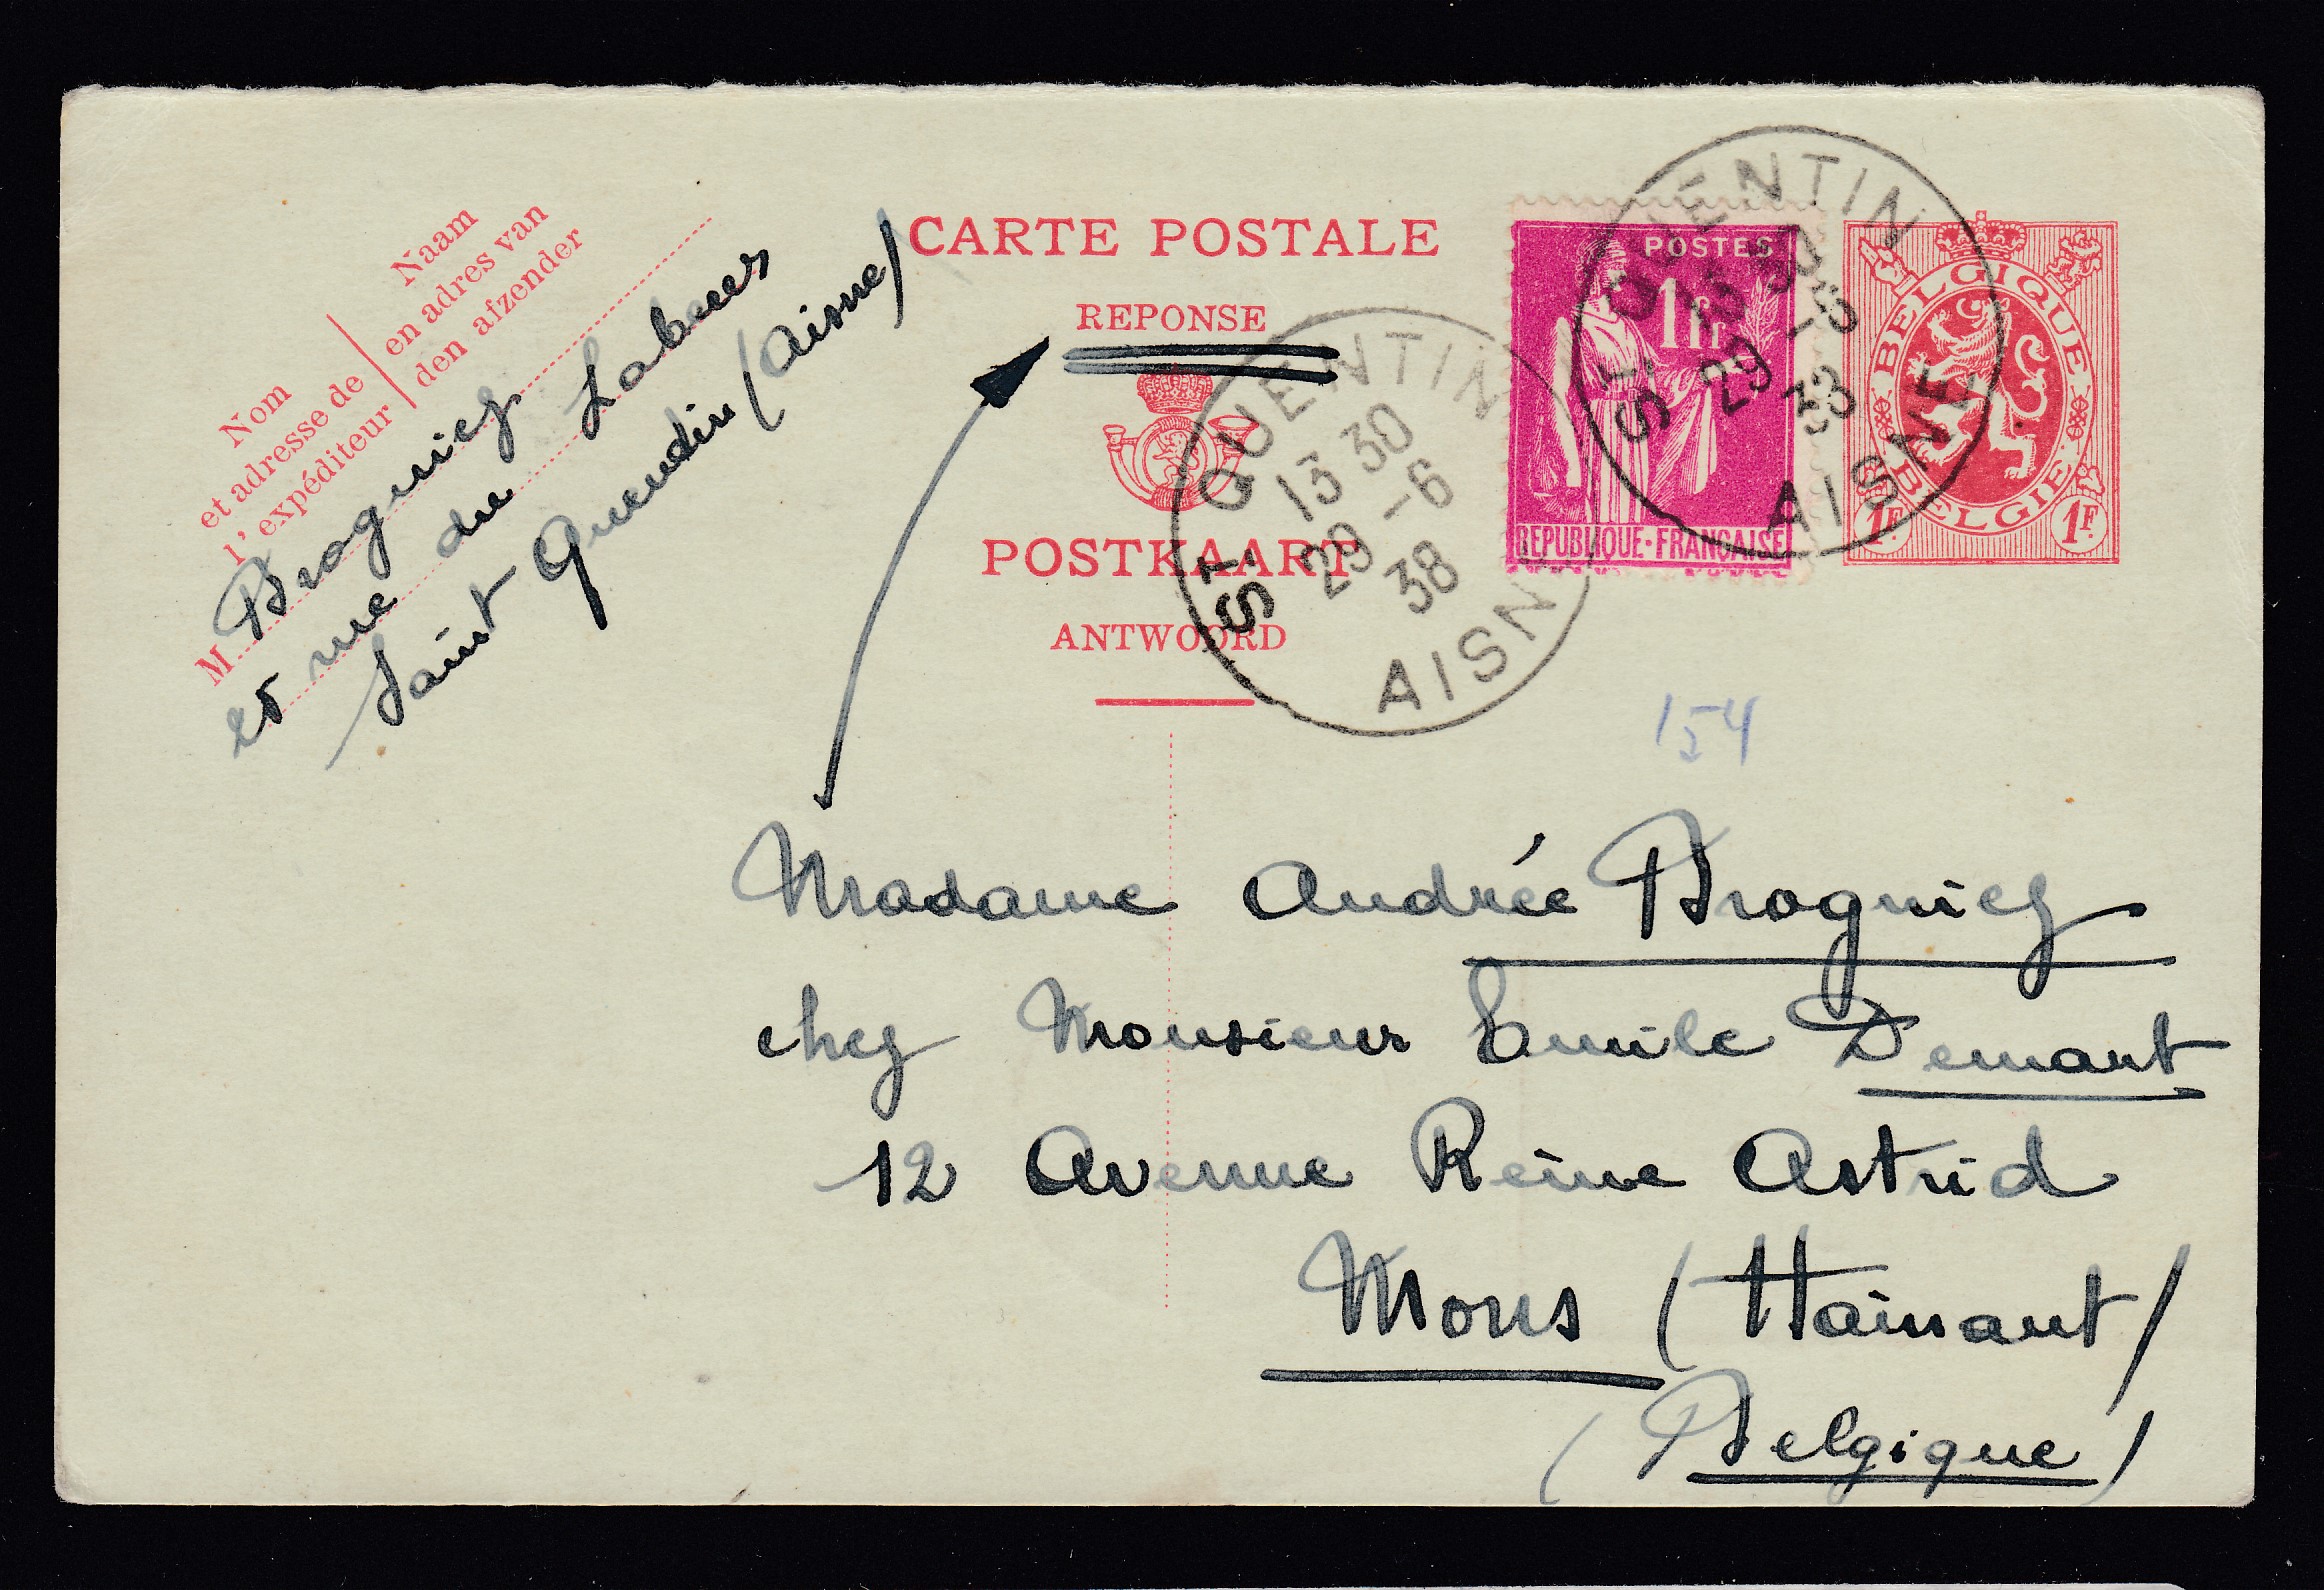 CARTE POSTALE
REPONSE
POSTKAART
ANTWOORD
Nom
et adresse de
l'expéditeur
Naam
en adres van
den afzender
M Brogniez
25 rue du Labeur
Saint Quentin (Aisne)
POSTES
1fr
REPUBLIQUE-FRANÇAISE
BELGIQUE
BELGIE
1F. 1F.
ST QUENTIN
13 30
29-6
38
AISNE
ST QUENTIN
13 30
29-6
38
AISNE
154
Madame Andrée Brogniez
chez Monsieur Emile Demant
12 Avenue Reine Astrid
Mons (Hainaut)
(Belgique)